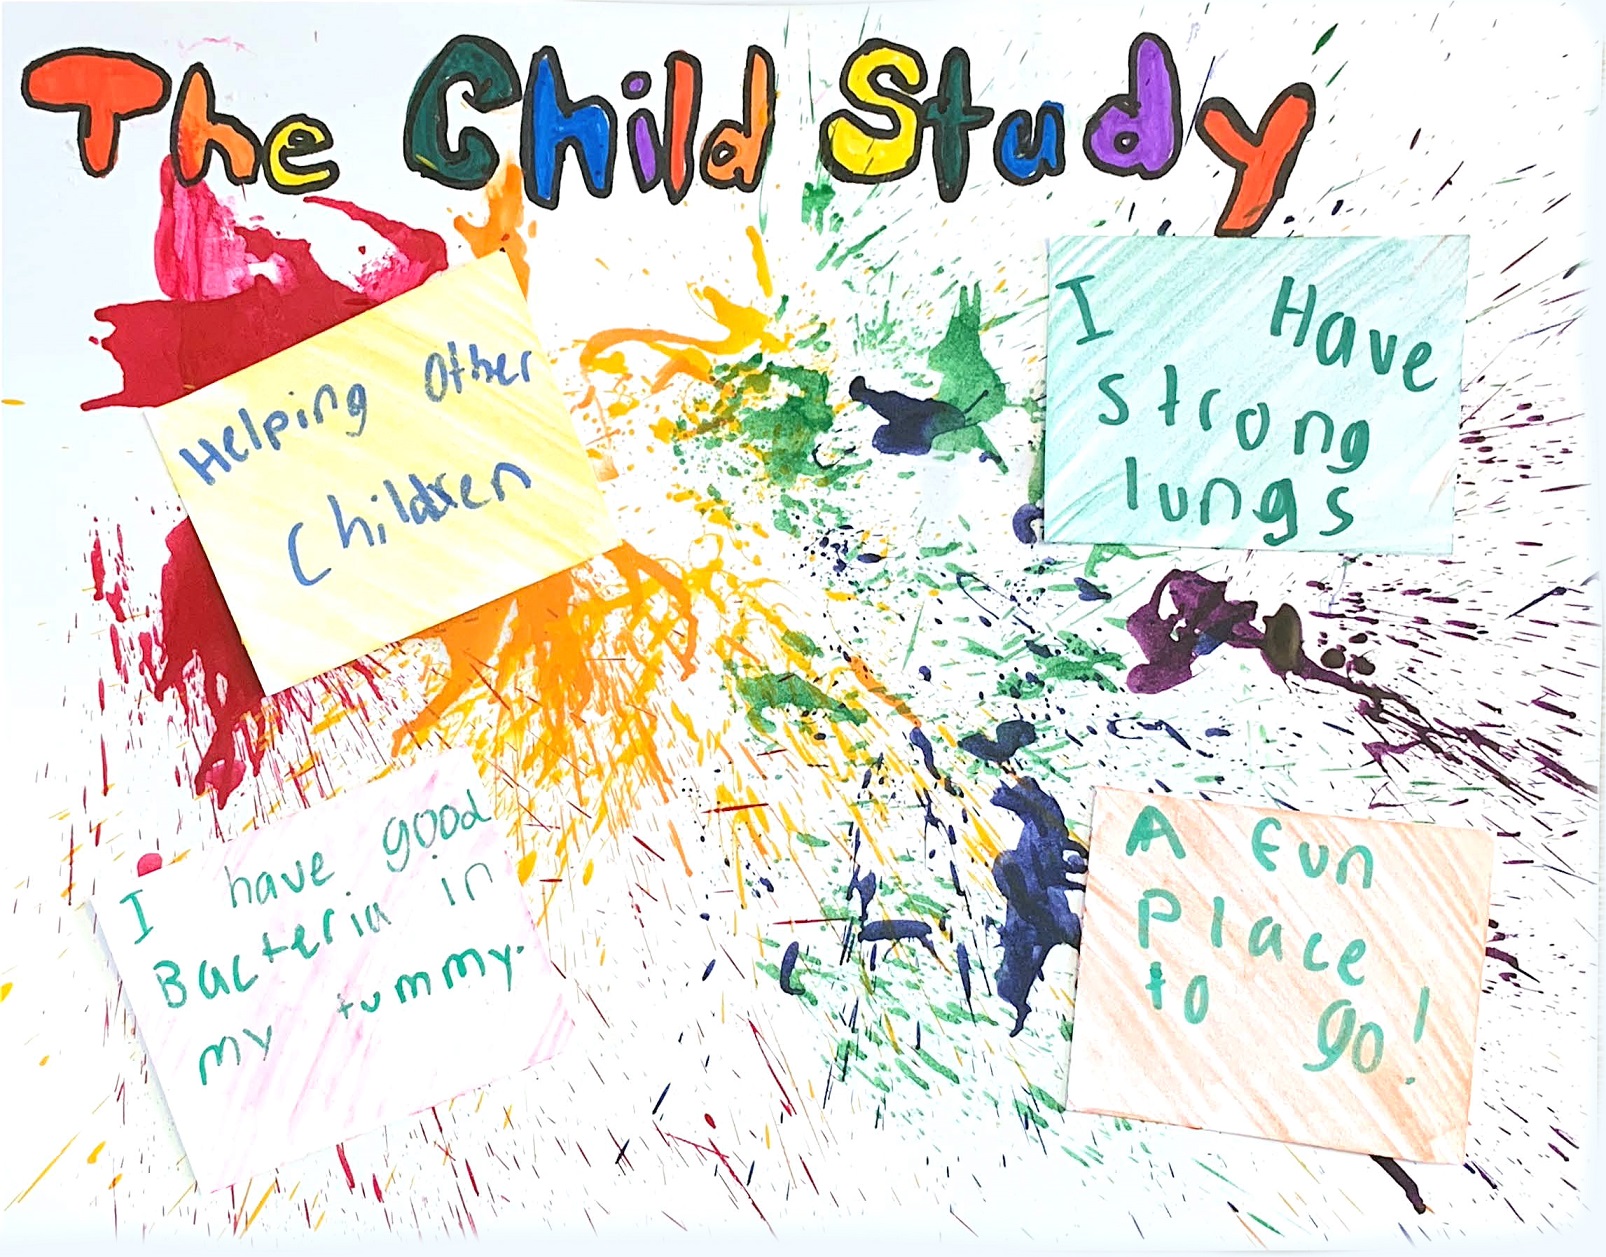 The Child Study
Helping Other
Children
I Have
strong
lungs
I have good
Bacteria in
my tummy.
A Fun
Place
to go!